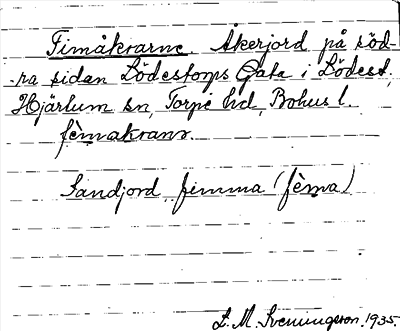 Fimåkrarne. Åkerjord på söd-
-ra sidan Lödestorps Gata i Lödest.,
Hjärtum sn, Torpe hd, Bohus l.
fèmakranr.
Sandjord fimma (fèma)
L. M. Svenungsson. 1935.